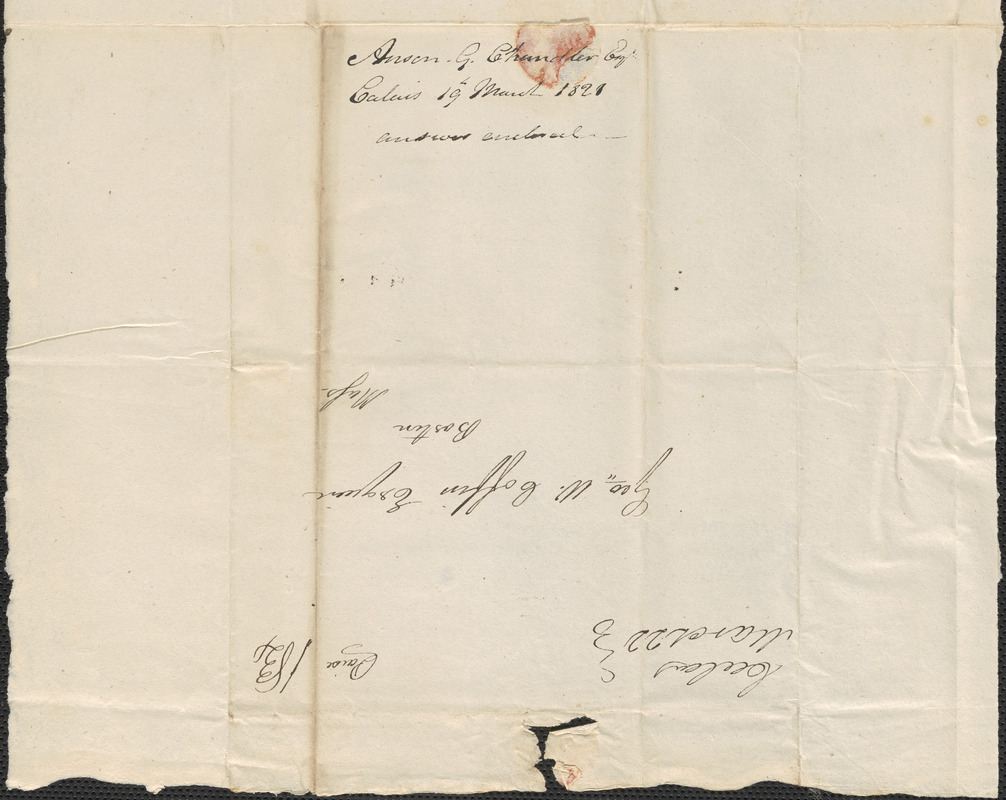 Anson. G. Chandler Esqr.
Calais 19 March 1821
answer enclosed
Calais
March 22
Paid 18¾
Geo. W. Coffin Esquire
Boston
Mass.